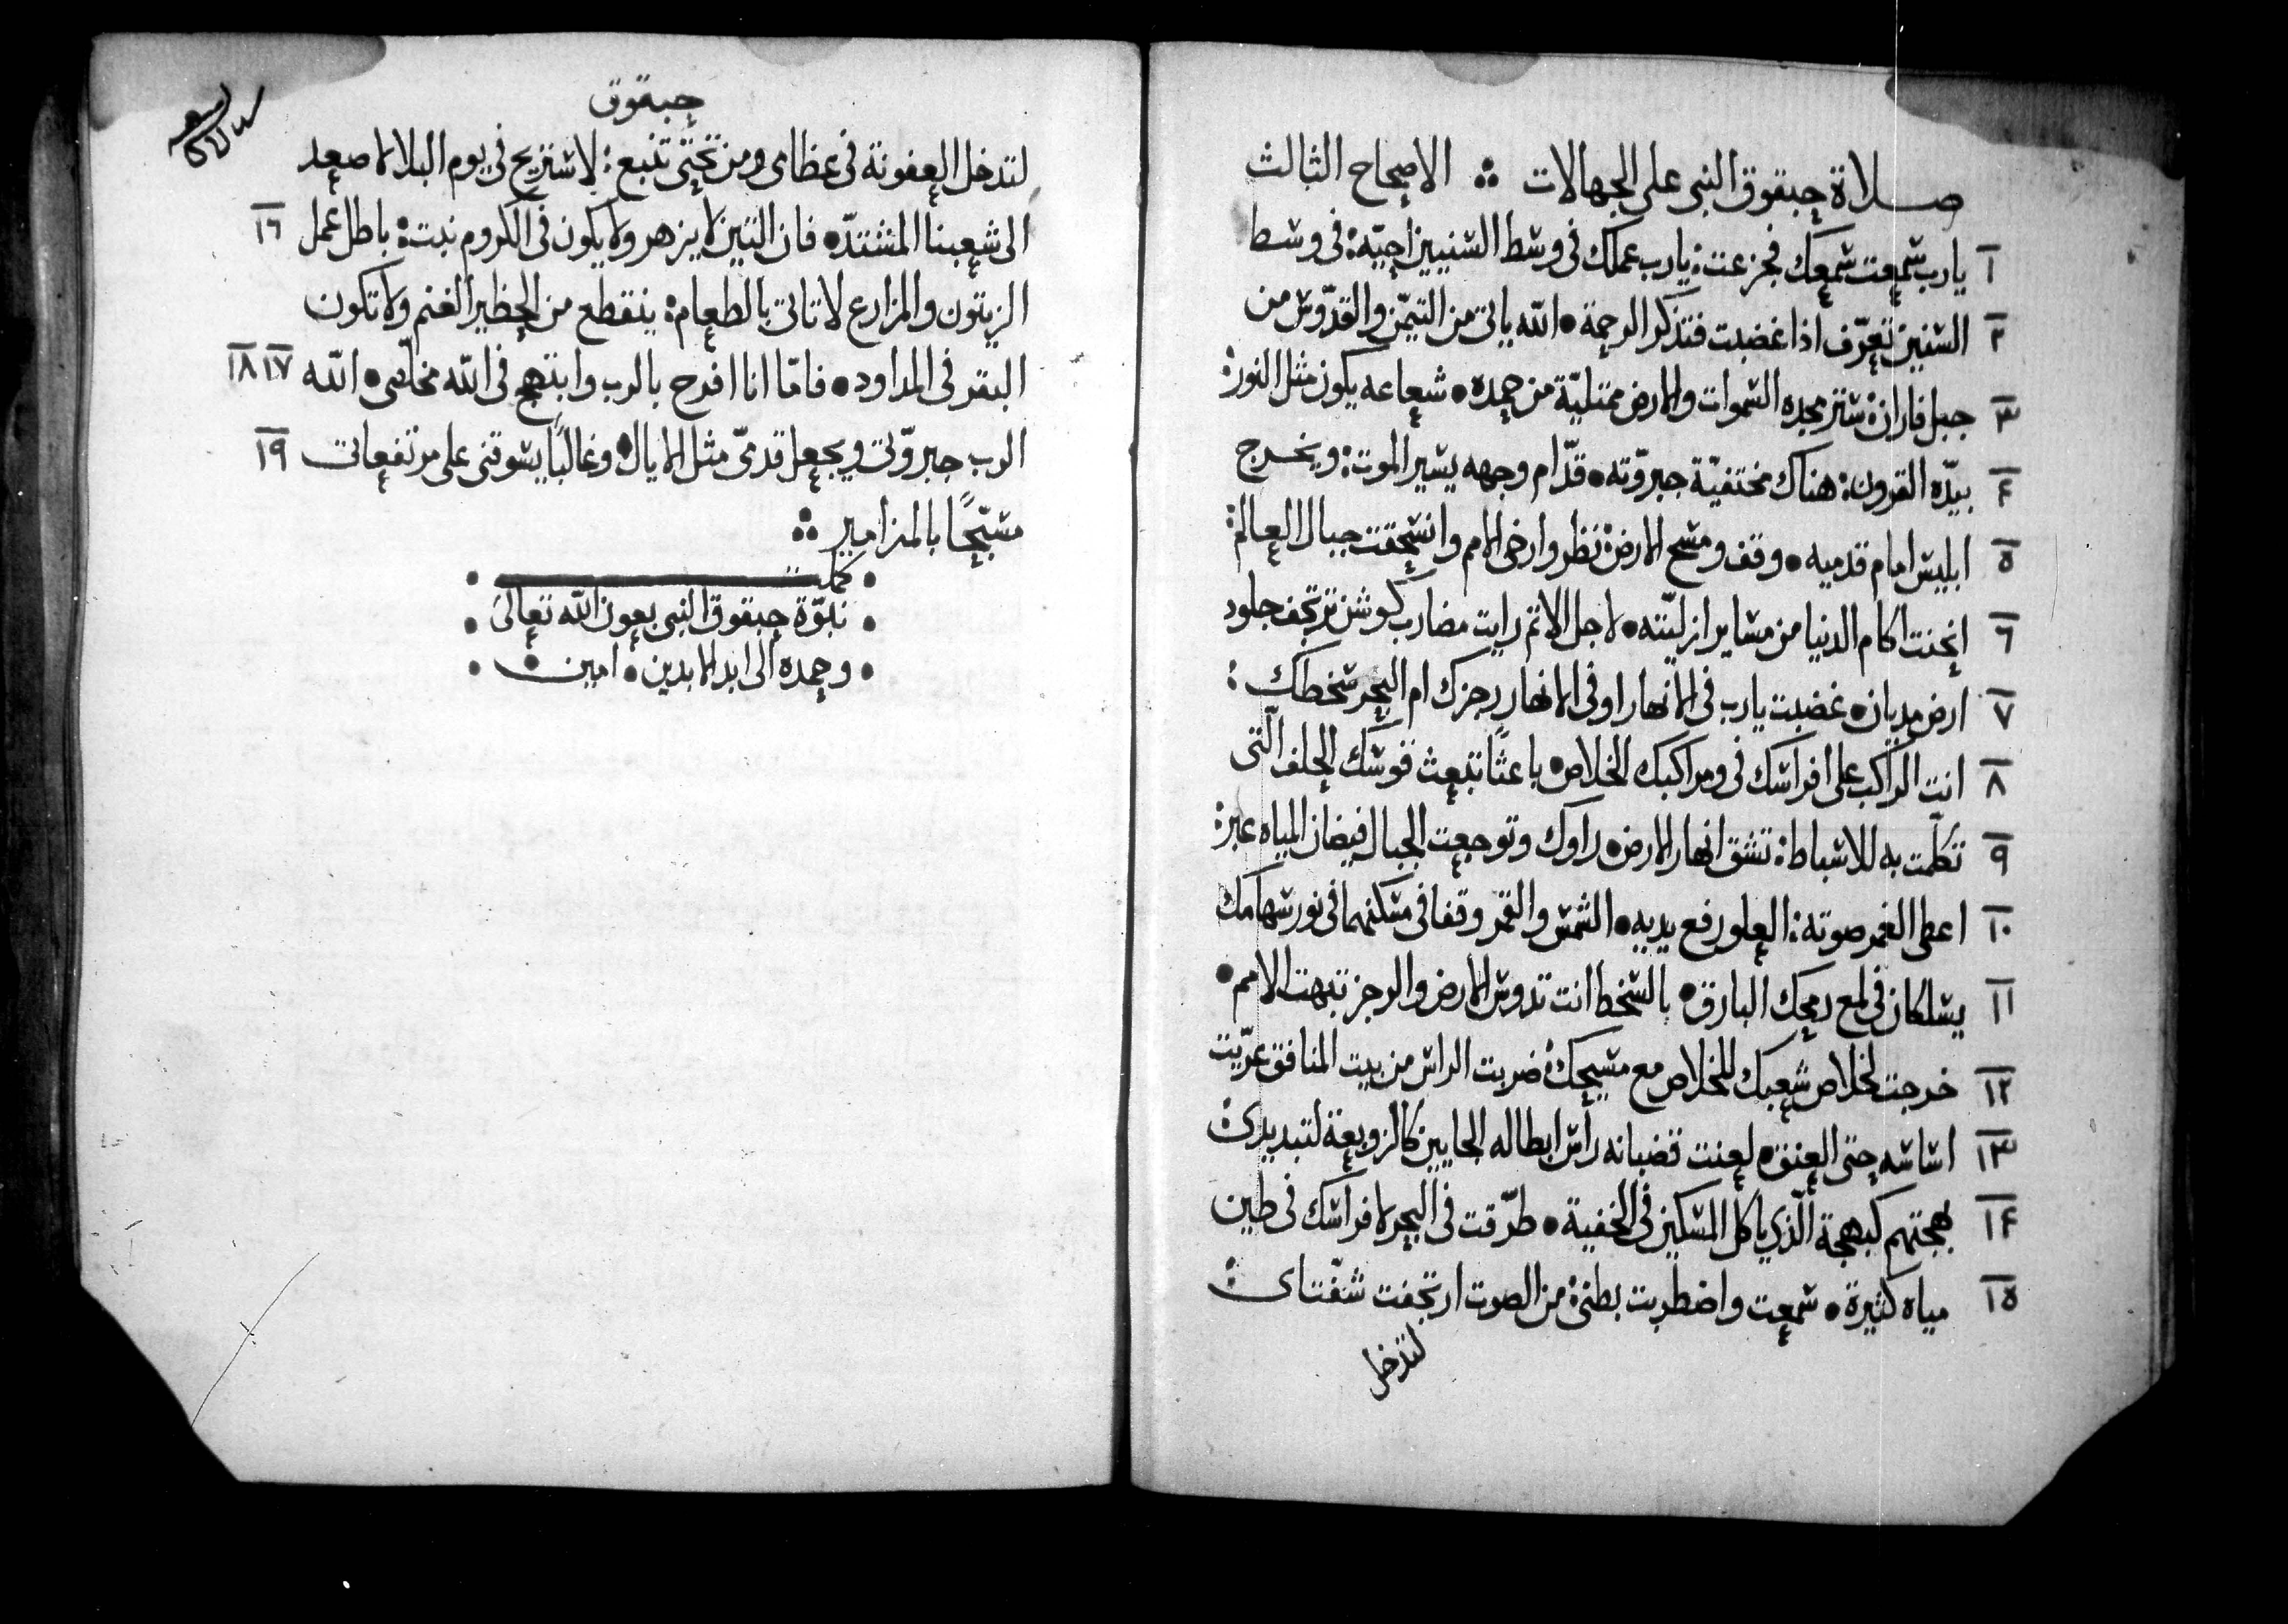 صلاة حبقوق النبي على الجهالات ∴ الاصحاح الثالث
١ يارب سمعت سمعك فجزعت: يارب عملك في وسط السنيين احيّه: في وسط
٢ السنين تعرّف اذا غضبت فتذكر الرحمة • الله ياتي من التيمّن والقدّوس من
٣ جبل فاران: ستر مجده السموات والارض ممتليّة من حمده • شعاعه يكون مثل النور:
٤ بيدّه القرون: هناك مختفيّة جبروّته • قدّام وجهه يسير الموت: ويخرج
٥ ابليس امام قدميه • وقف ومسح الارض: نظر وارخى الامم وانسحقت جبال العالم:
٦ انحنت اكام الدنيا من مساير ازليّته • لاجل الاثم رايت مضارب كوش: ترتجف جلود
٧ ارض مديان • غضبت يارب في الانهار او في الانهار رجزك ام البحر سخطك:
٨ انت الراكب على افراسك في ومراكبك الخلاص • باعثًا تبعث قوسك الحلف الّتى
٩ تكلّمت به للاسباط: تشق انهار الارض • راوك وتوجعت الجبال فيضان المياه عبر:
١٠ اعطى الغمر صوته: العلو رفع يديه • الشمس والقمر وقفا في مسكنهما في نور سهامك
١١ يسلكان في لمع رمحك البارق • بالسخط انت تدوس الارض والرجز تبهت الامم •
١٢ خرجت لخلاص شعبك للخلاص مع مسيحك: ضربت الراس من بيت المنافق عرّيت
١٣ اساسه حتى العنق • لعنت قضبانه راس ابطاله الجايين كالزوبعة لتبديدى:
١٤ بهجتهم كبهجة الّذي ياكل المسكين في الخفية • طرّقت في البحر لافراسك في طين
١٥ مياه كثيرة • سمعت واضطربت بطنى: من الصوت ارتجفت شفّتاى:
لتدخل
حبقوق
لتدخل العفونة في عظامى ومن تحتى تنبع: لاستريح في يوم البلا لاصعد
الى شعبنا المشتدّ • فان التين لا يزهر ولا يكون في الكروم نبت: باطل عمل ١٦
الزيتون والمزارع لا تاتى بالطعام: ينقطع من الحظير الغنم ولا تكون
البقر في المداود • فامّا انا افرح بالرب وابتهج في الله مخلّصى • الله ١٧ ١٨
الرب جبروّتى ويجعل قدمىّ مثل الايال • وغالبًا يسوقنى على مرتفعاتى ١٩
مسبّحًا بالمزامير ∴
كملت
نبوّة حبقوق النبى بعون الله تعالى
وحمده الى ابد الابدين • امين •